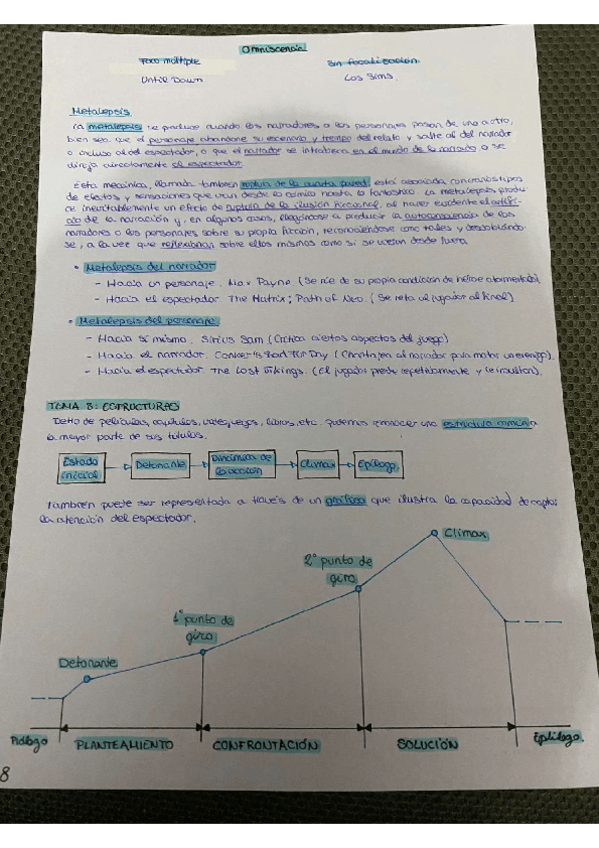 Omnisciencia
Foco múltiple
Sin focalización.
Until Down
Los Sims.
Metalepsis
La metalepsis se produce cuando los narradores o los personajes pasan de uno a otro,
bien sea que el personaje abandone su escenario y tiempo del relato y salte al del narrador
o incluso al del espectador, o que el narrador se introduzca en el mundo de lo narrado o se
dirija directamente al espectador.
Esta mecánica, llamada también ruptura de la cuarta pared, está asociada con varios tipos
de efectos y sensaciones que van desde lo cómico hasta lo fantástico. La metalepsis produ-
ce inevitablemente un efecto de ruptura de la ilusión ficcional, al hacer evidente el artifi-
cio de la narración y, en algunos casos, llegándose a producir la autoconciencia de los
narradores o los personajes sobre su propia ficción, reconociéndose como tales y descubriéndo-
se, a la vez que reflexionan sobre ellos mismos como si se vieran desde fuera.
• Metalepsis del narrador
- Hacia un personaje. Max Payne (Se ríe de su propia condición de héroe atormentado).
- Hacia el espectador. The Matrix; Path of Neo. (Se reta al jugador al final).
• Metalepsis del personaje
- Hacia sí mismo. Sirius Sam (Critica ciertos aspectos del juego)
- Hacia el narrador. Conver's Bad Fur Day (Chantajea al narrador para matar un enemigo).
- Hacia el espectador. The Lost Vikings. (El jugador pierde repetidamente y le insultan).
TEMA 3: ESTRUCTURAS
Detro de películas, capítulos, videojuegos, libros, etc. podemos conocer una estructura común a
la mayor parte de sus títulos.
Estado inicial
Detonante
Dinámica de la acción
Clímax
Epílogo
También puede ser representada a través de un gráfico que ilustra la capacidad de captar
la atención del espectador.
Clímax
2º punto de
giro
1º punto de
giro
Detonante
Prólogo
PLANTEAMIENTO
CONFRONTACIÓN
SOLUCIÓN
Epílogo.
8